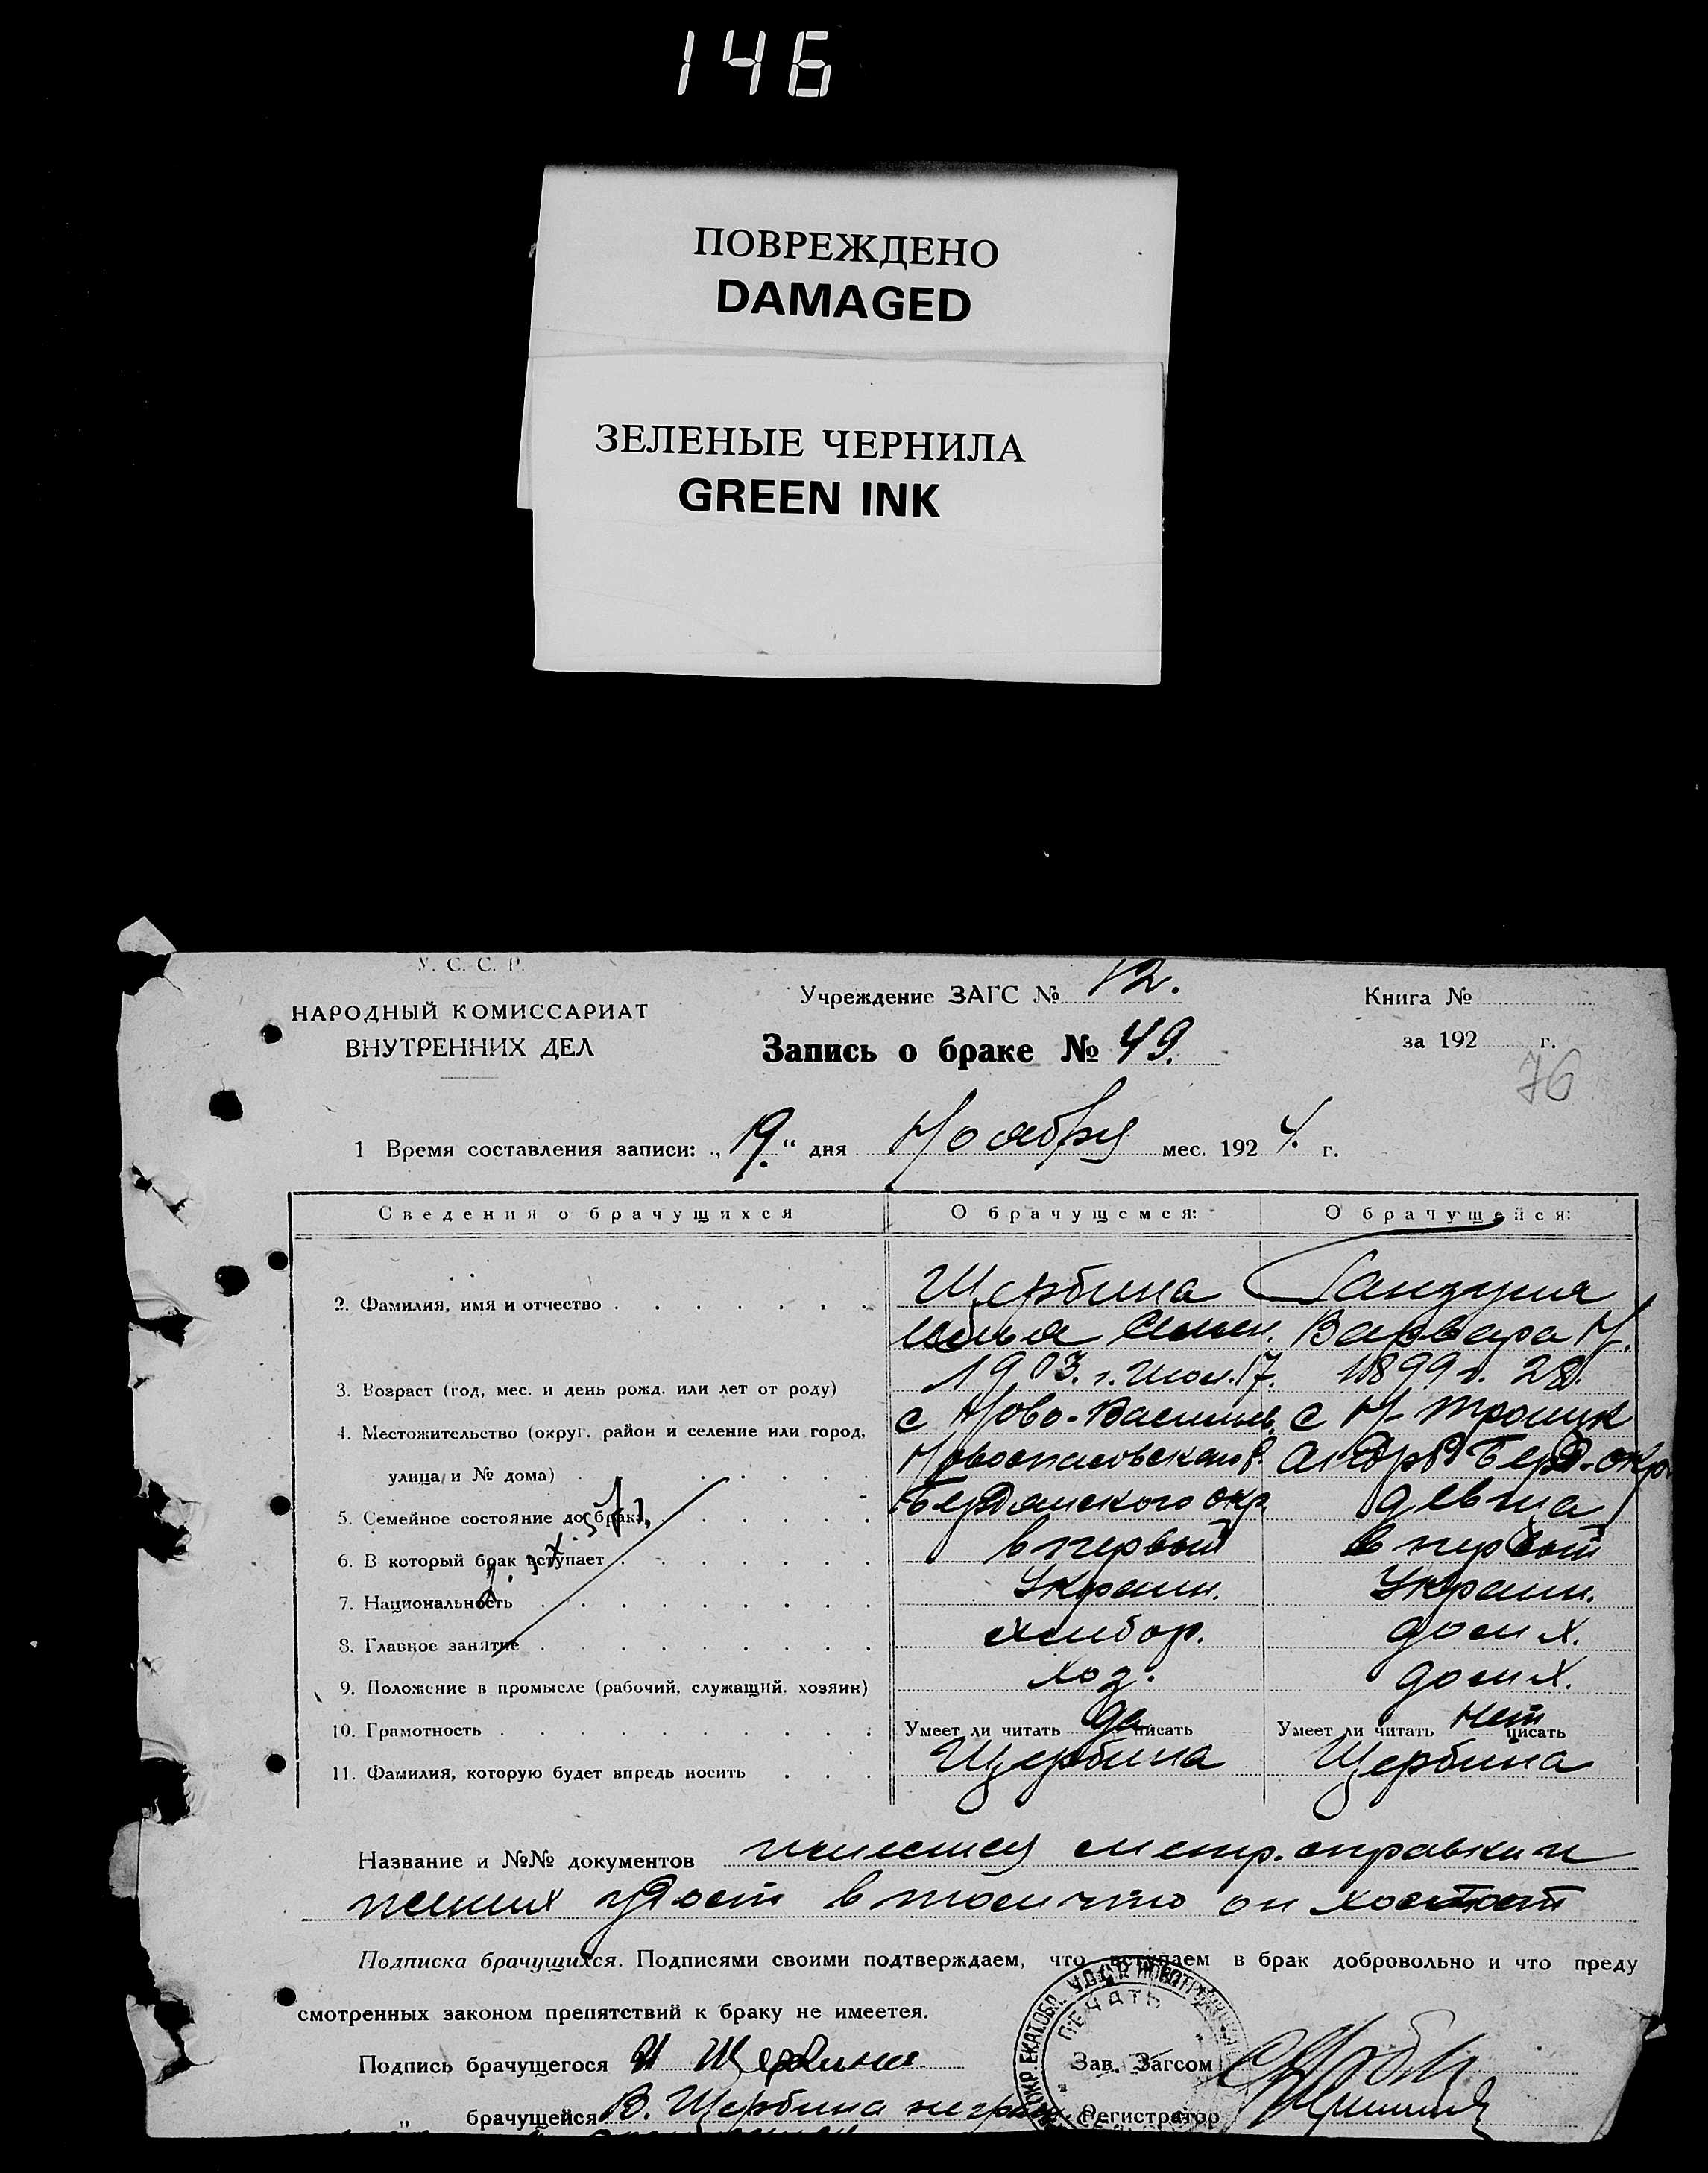 146
ПОВРЕЖДЕНО
DAMAGED
ЗЕЛЕНЫЕ ЧЕРНИЛА
GREEN INK
У. С. С. Р.
НАРОДНЫЙ КОМИССАРИАТ
ВНУТРЕННИХ ДЕЛ
Учреждение ЗАГС № 12.
Запись о браке № 49.
Книга №
за 192 г.
76
1 Время составления записи: „19.“ дня Ноября мес. 1924. г.
Сведения о брачущихся О брачущемся: О брачущейся:
2. Фамилия, имя и отчество Щербина
Варвара Н.
3. Возраст (год, мес. и день рожд. или лет от роду) 1903. г. Июл. 17. 1899 г. 28.
4. Местожительство (округ, район и селение или город, с Ново-Васильев. с Н-Троицк
улица и № дома) Новоспасовского р. Берд. окр.
Бердянского окр.
5. Семейное состояние до брака, девица
6. В который брак вступает в первый в первый
7. Национальность Украин. Украин.
8. Главное занятие хлебор. дом. х.
9. Положение в промысле (рабочий, служащий, хозяин) хоз. дом. х.
10. Грамотность Умеет ли читать да писать Умеет ли читать Нет писать
11. Фамилия, которую будет впредь носить Щербина Щербина
Название и №№ документов метр. справки и
удост в том что он холост
Подписка брачущихся. Подписями своими подтверждаем, что вступаем в брак добровольно и что преду
смотренных законом препятствий к браку не имеется.
Подпись брачущегося И Щербина
Зав. Загсом
„ брачущейся В. Щербина неграм.
Регистратор
ПЕЧАТЬ